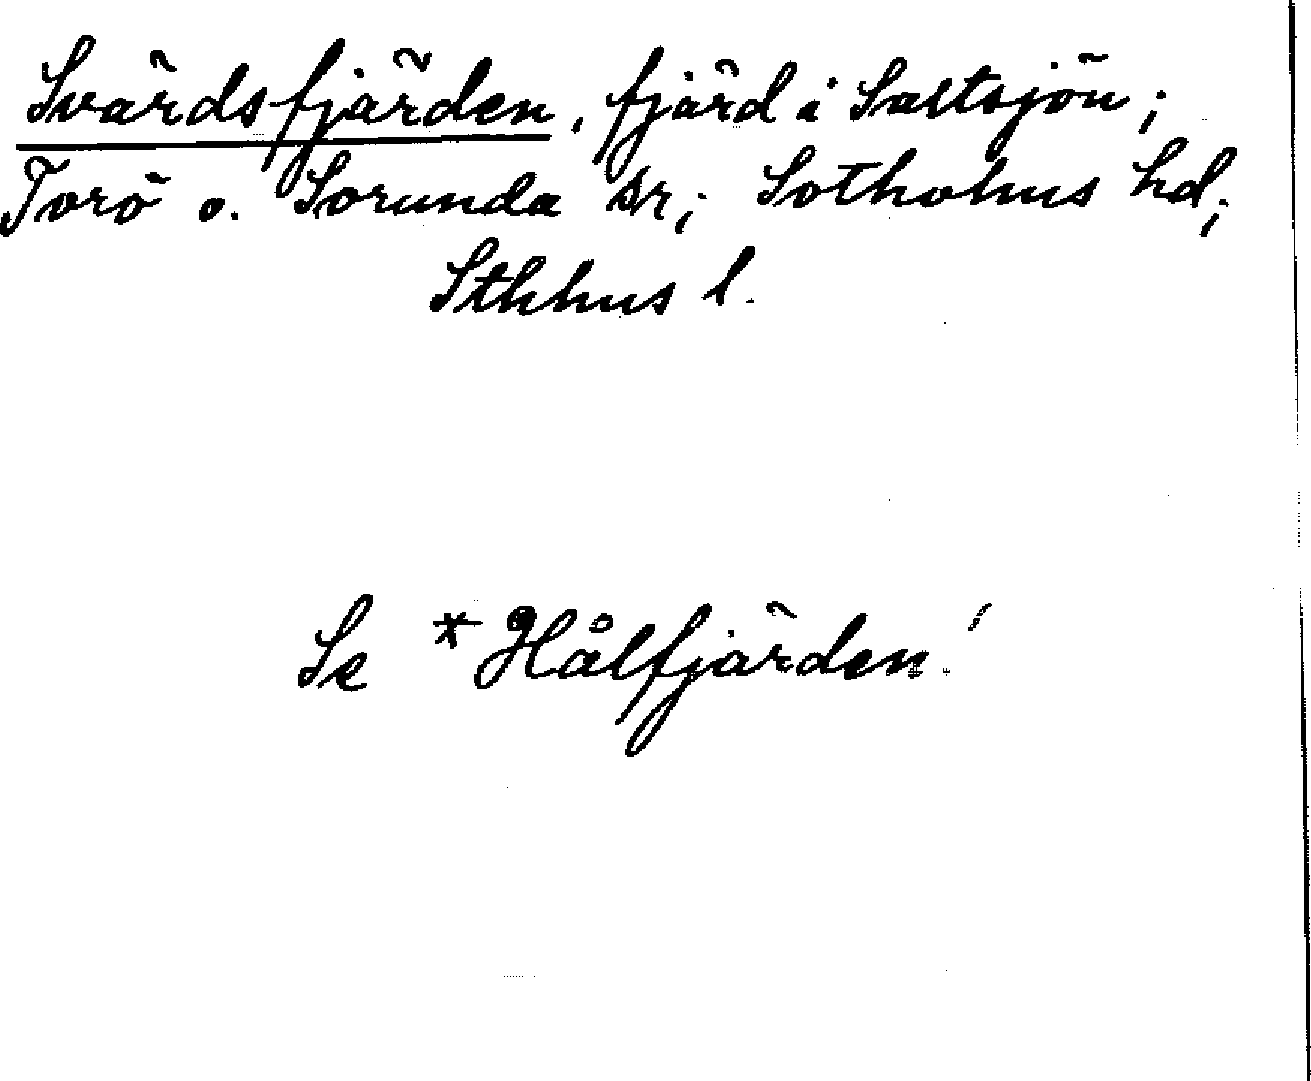 Svärdsfjärden, fjärd i Saltsjön;
Torö o. Sorunda snr; Sotholms hd;
Sthlms l.
Se *Hålfjärden!